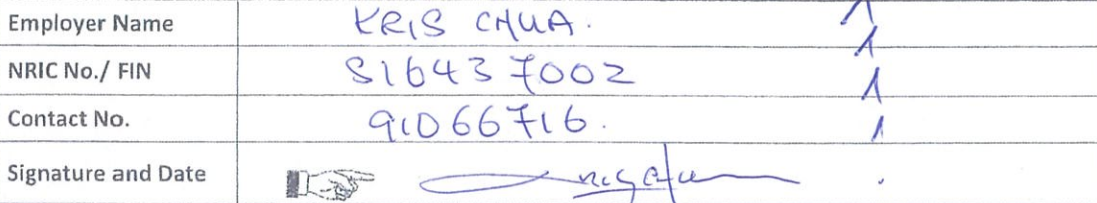 Employer Name KRIS CHUA.
NRIC No./ FIN S1643700Z
Contact No. 91066716.
Signature and Date